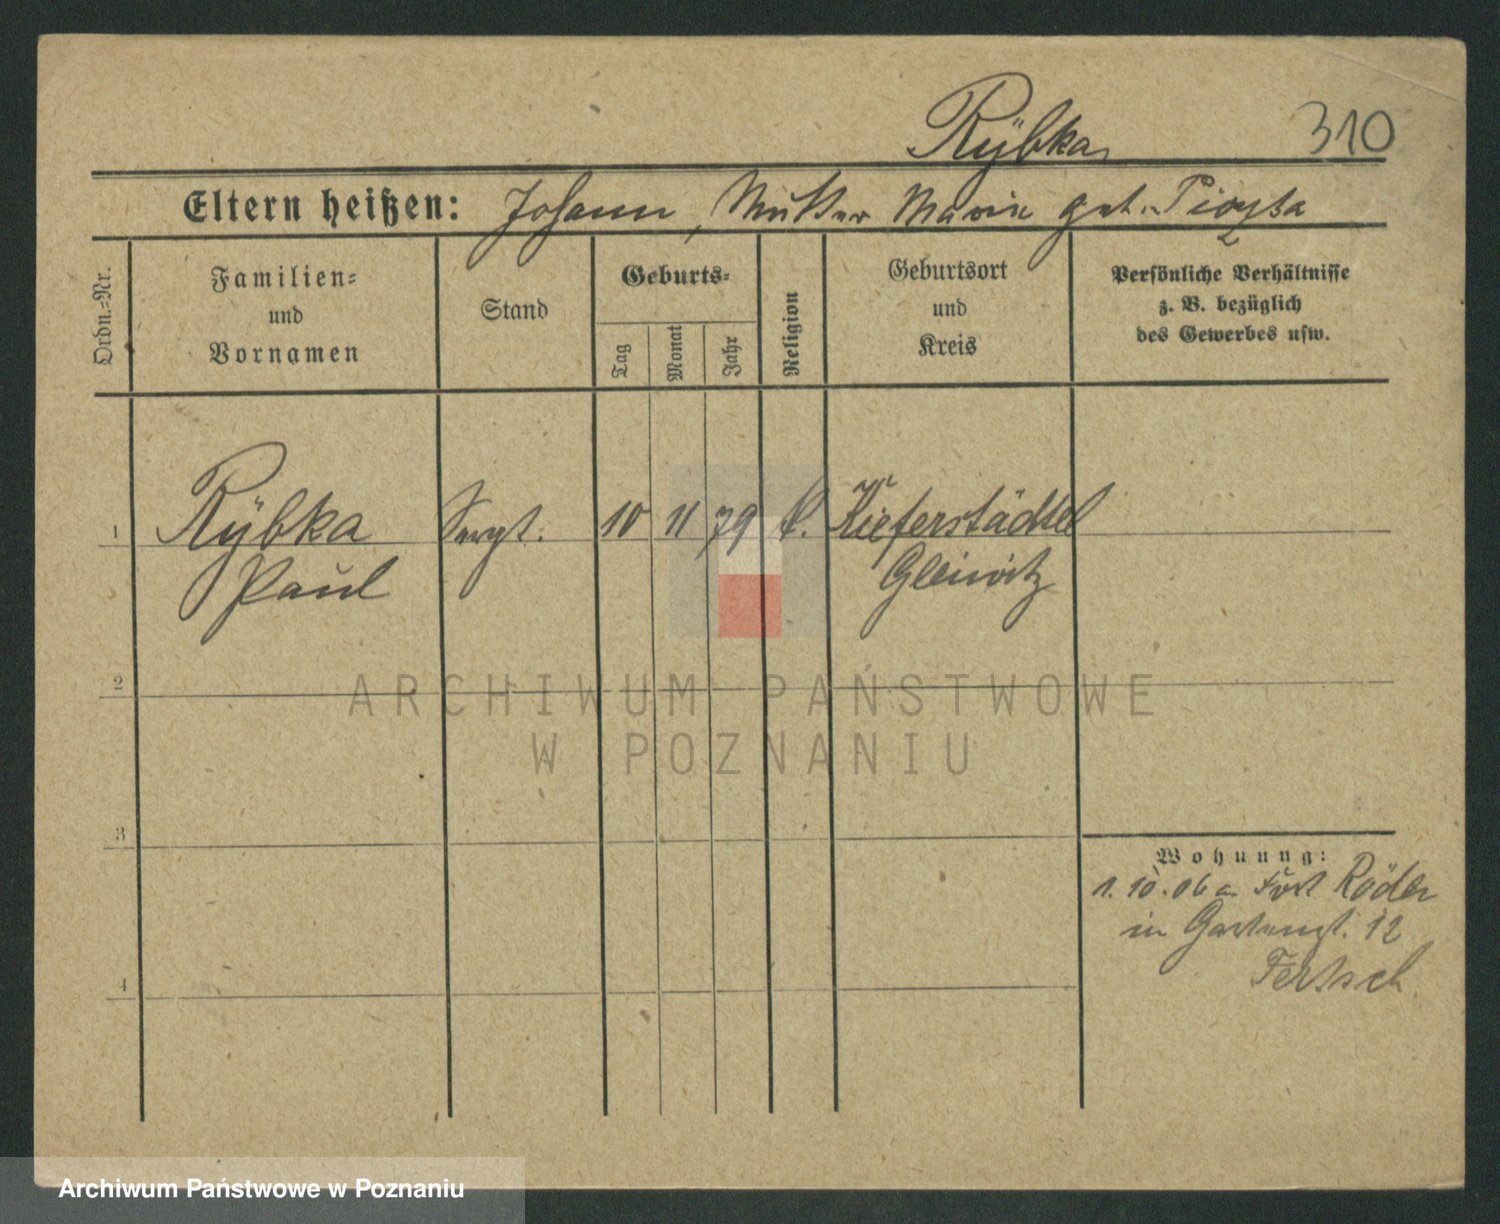 Rÿbka
310
Eltern heißen: Johann, Mutter Marie geb.
Ordn.=Nr.
Familien=
und
Vornamen
Stand
Geburts=
Tag
Monat
Jahr
Religion
Geburtsort
und
Kreis
Persönliche Verhältnisse
z. B. bezüglich
des Gewerbes usw.
1 Rÿbka Sergt. 10 11 79 k. Kieferstädtel
Paul Gleiwitz
2
ARCHIWUM PAŃSTWOWE
W POZNANIU
3
Wohnung:
1. 10. 06 a Fort Röder
in Gartenst. 12
4
Archiwum Państwowe w Poznaniu